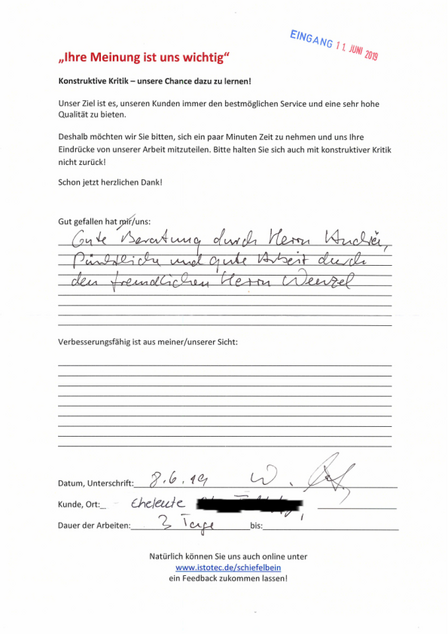 EINGANG 11. JUNI 2019
„Ihre Meinung ist uns wichtig“
Konstruktive Kritik – unsere Chance dazu zu lernen!
Unser Ziel ist es, unseren Kunden immer den bestmöglichen Service und eine sehr hohe
Qualität zu bieten.
Deshalb möchten wir Sie bitten, sich ein paar Minuten Zeit zu nehmen und uns Ihre
Eindrücke von unserer Arbeit mitzuteilen. Bitte halten Sie sich auch mit konstruktiver Kritik
nicht zurück!
Schon jetzt herzlichen Dank!
Gut gefallen hat mir/uns:
Gute Beratung durch Herrn
Pünktliche und gute Arbeit durch
den freundlichen Herrn Wenzel
Verbesserungsfähig ist aus meiner/unserer Sicht:
Datum, Unterschrift: 8.6.19 W.
Kunde, Ort: Eheleute
Dauer der Arbeiten: 3 Tage bis:
Natürlich können Sie uns auch online unter
www.istotec.de/schiefelbein
ein Feedback zukommen lassen!